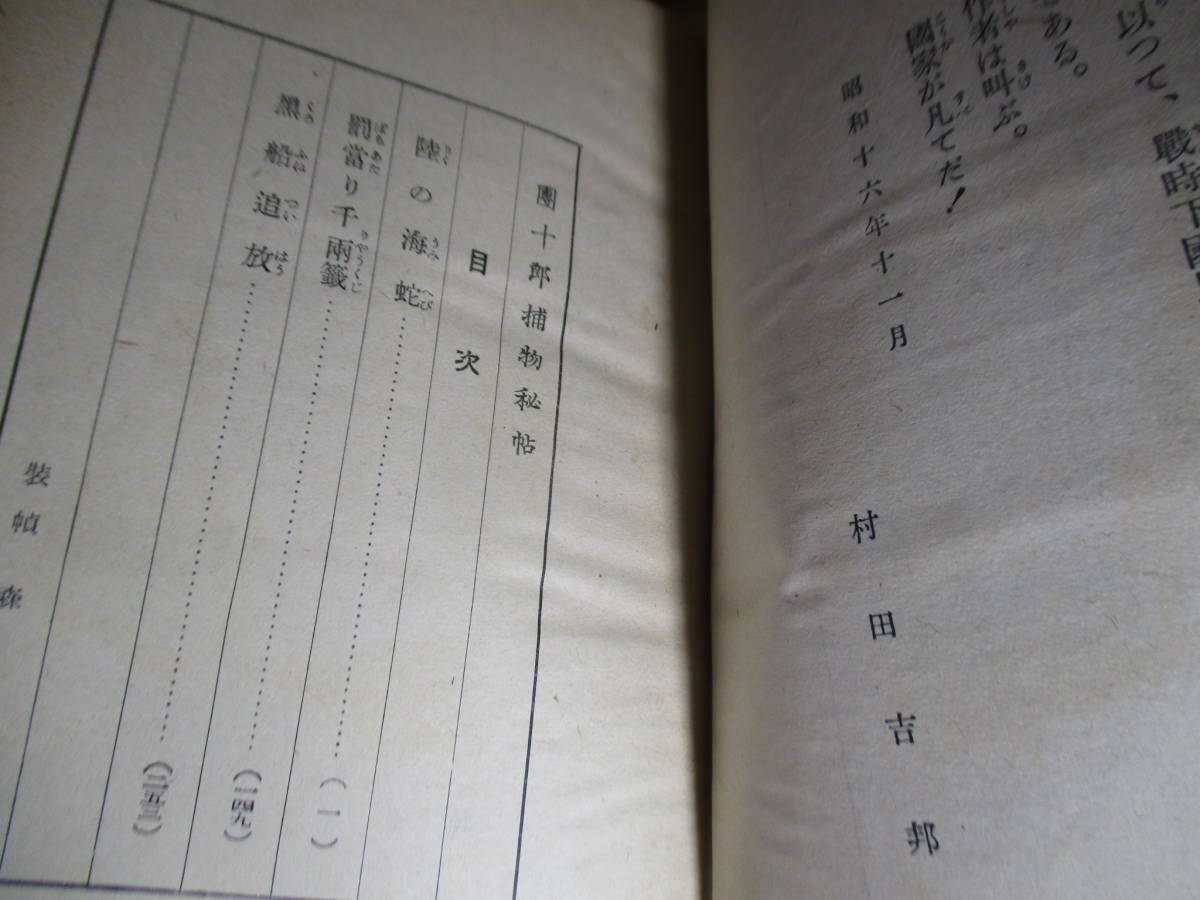 以つて、戰時下国
である。
作者は叫ぶ。
國家が凡てだ！
昭和十六年十一月
村田吉邦
團十郎捕物秘帖
目次
陸の海蛇……（一）
罰當り千兩籤……（一四九）
黑船追放……
裝幀